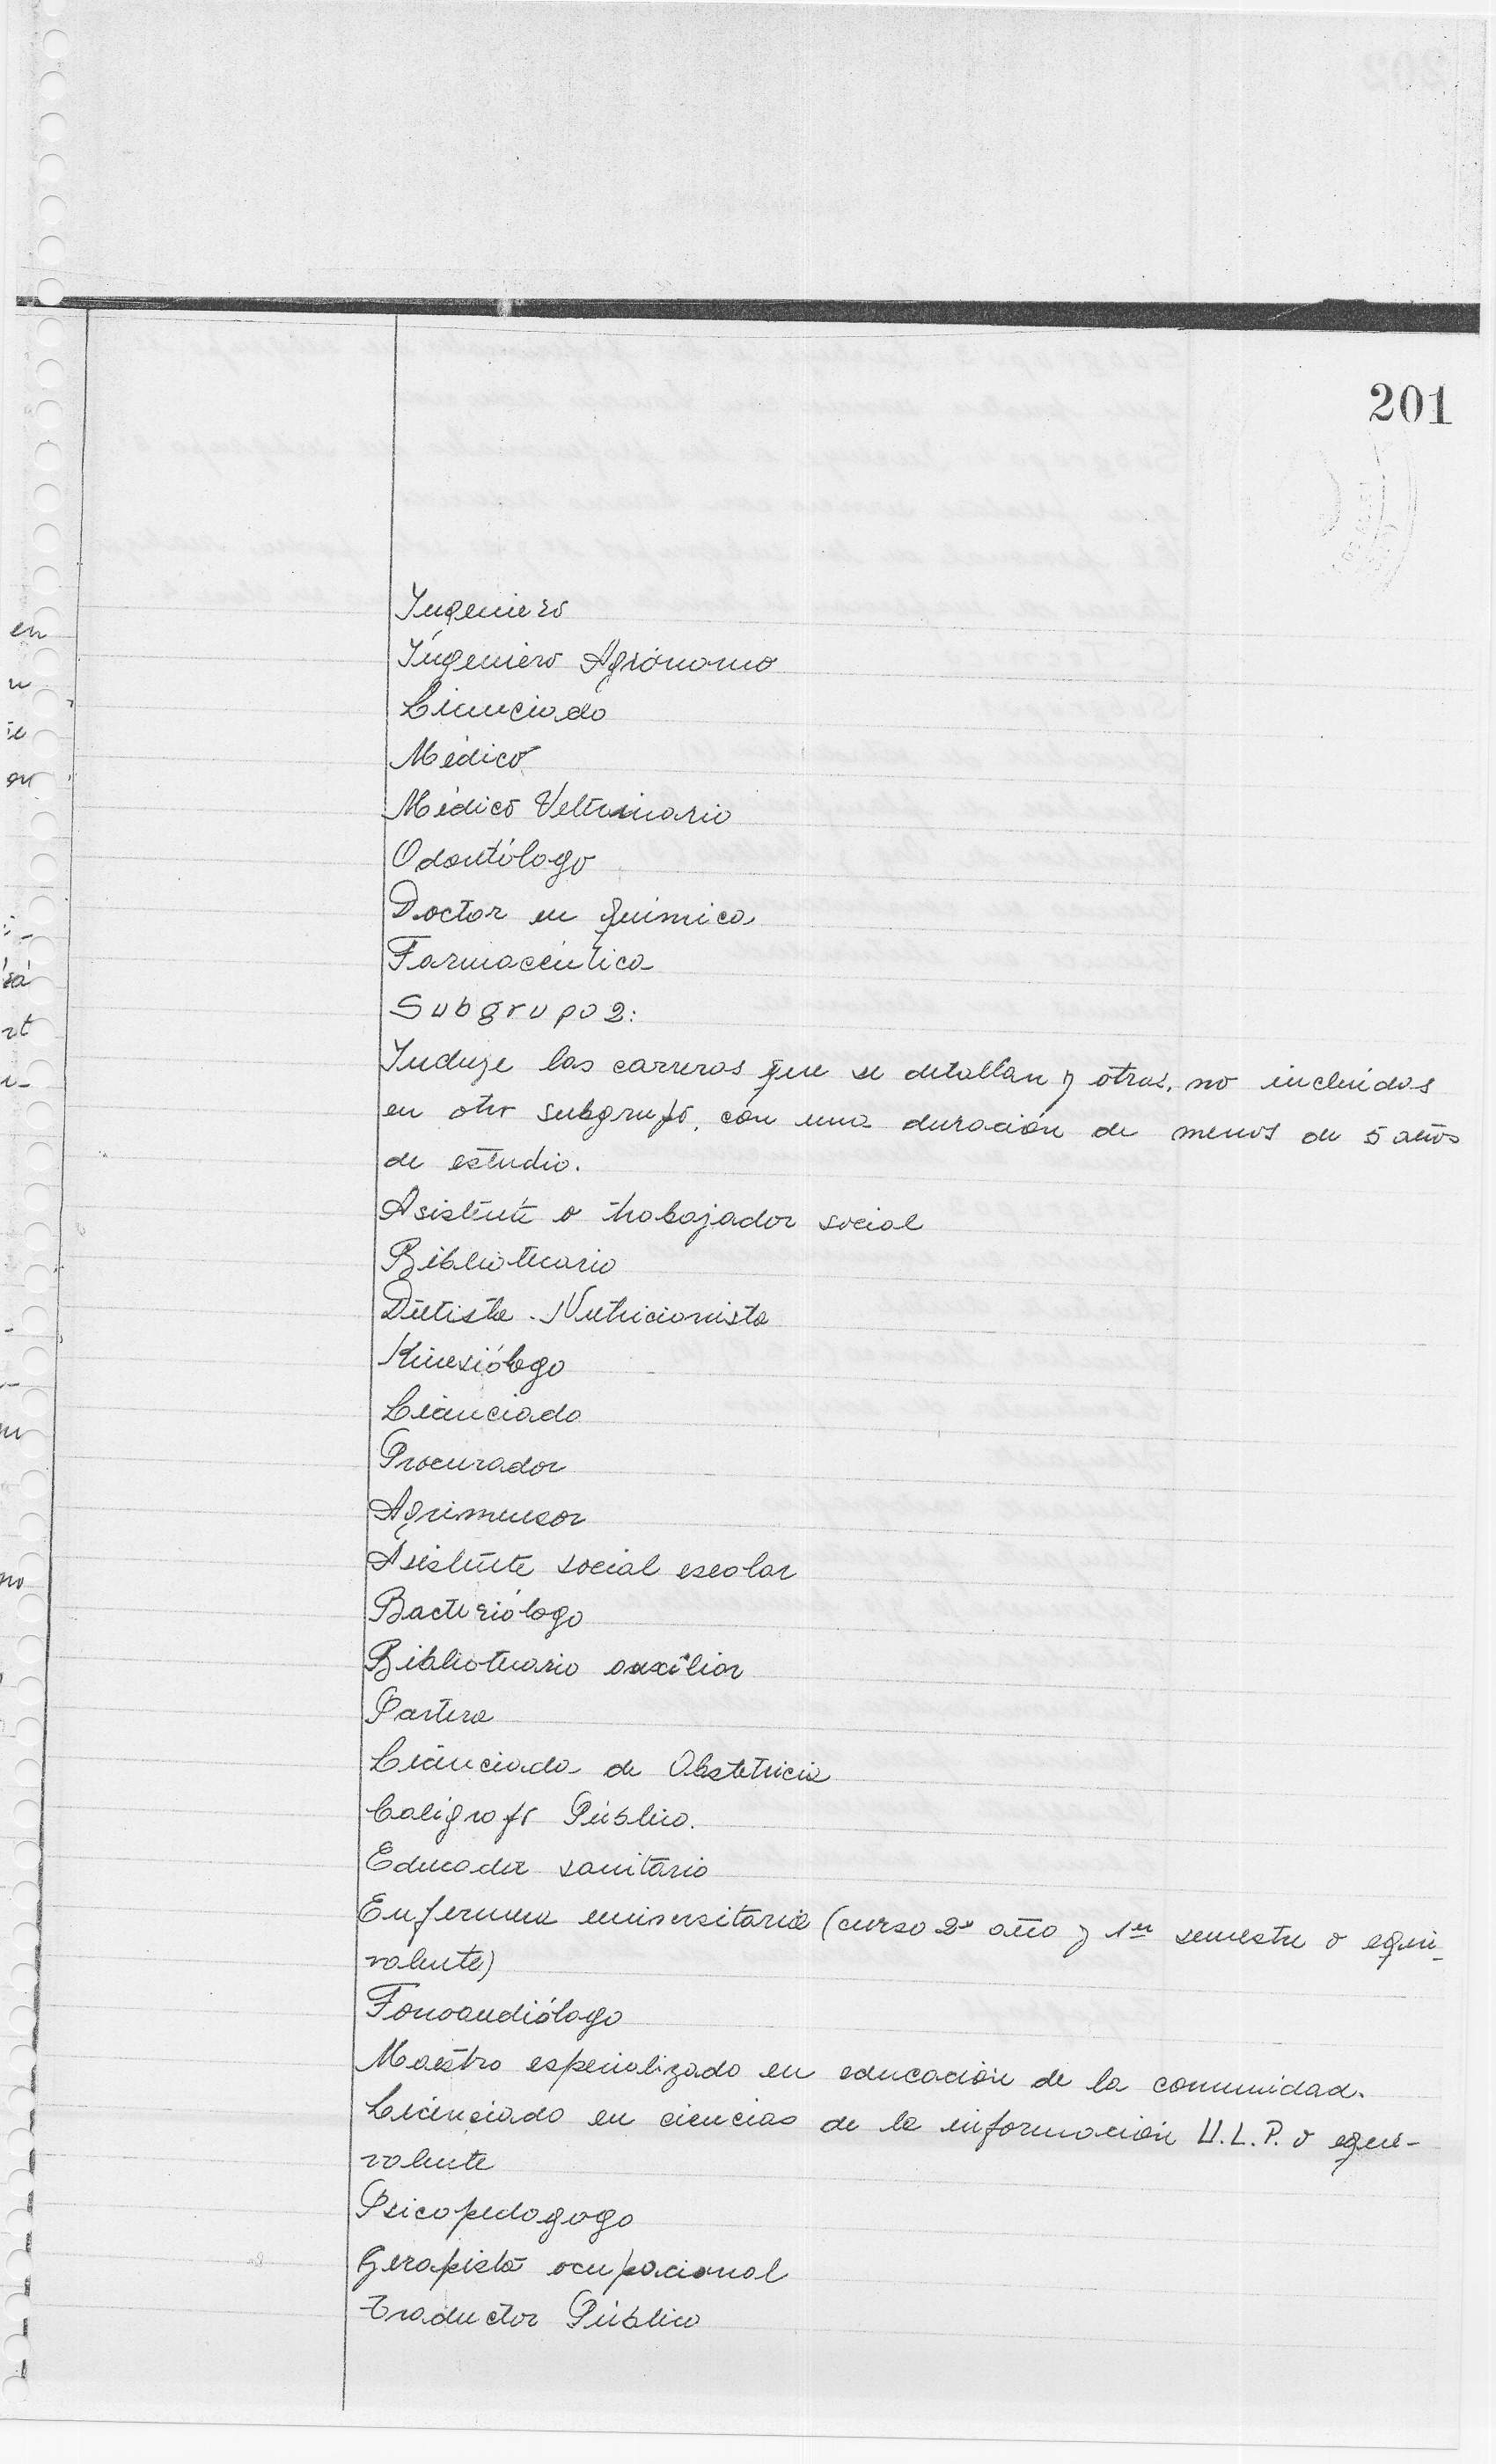 201
Ingeniero
Ingeniero Agrónomo
Licenciado
Médico
Médico Veterinario
Odontólogo
Doctor en química
Farmacéutica
Subgrupo 2:
Incluye las carreras que se detallan y otras, no incluidas
en otro subgrupo, con una duración de menos de 5 años
de estudio.
Asistente o trabajador social
Bibliotecario
Dietista - Nutricionista
Kinesiólogo
Licenciado
Procurador
Agrimensor
Asistente social escolar
Bacteriólogo
Bibliotecario auxiliar
Partera
Licenciada de Obstetricia
Calígrafo Público.
Educador sanitario
Enfermera universitaria (curso 2º año y 1er semestre o equi-
valente)
Fonoaudiólogo
Maestro especializado en educación de la comunidad.
Licenciado en ciencias de la información U.L.P. o equi-
valente
Psicopedagogo
Terapista ocupacional
Traductor Público